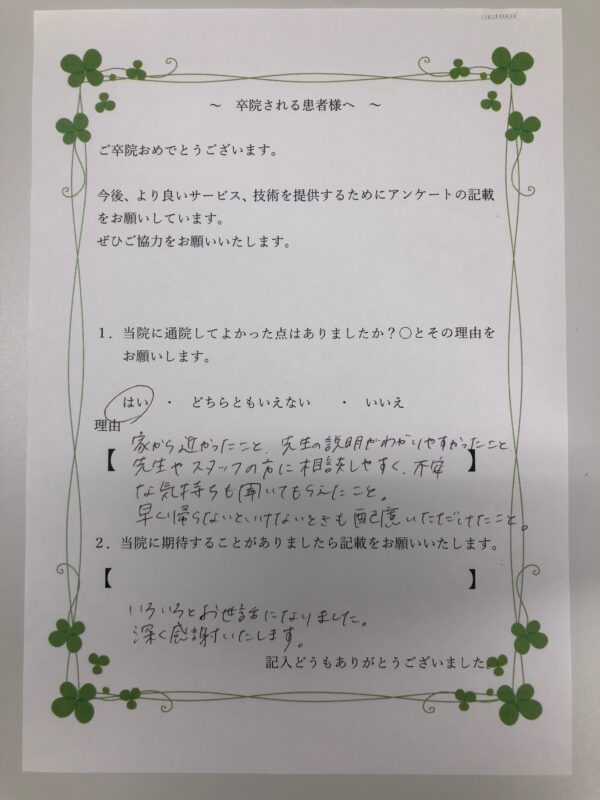 ～ 卒院される患者様へ ～
ご卒院おめでとうございます。
今後、より良いサービス、技術を提供するためにアンケートの記載
をお願いしています。
ぜひご協力をお願いいたします。
1．当院に通院してよかった点はありましたか？〇とその理由を
お願いします。
はい ・ どちらともいえない ・ いいえ
理由
家から近かったこと、先生の説明がわかりやすかったこと
【先生やスタッフの方に相談しやすく、不安】
な気持ちも聞いてもらえたこと。
早く帰らないといけないときも配慮いただけたこと。
2．当院に期待することがありましたら記載をお願いいたします。
【 】
いろいろとお世話になりました。
深く感謝いたします。
記入どうもありがとうございました。